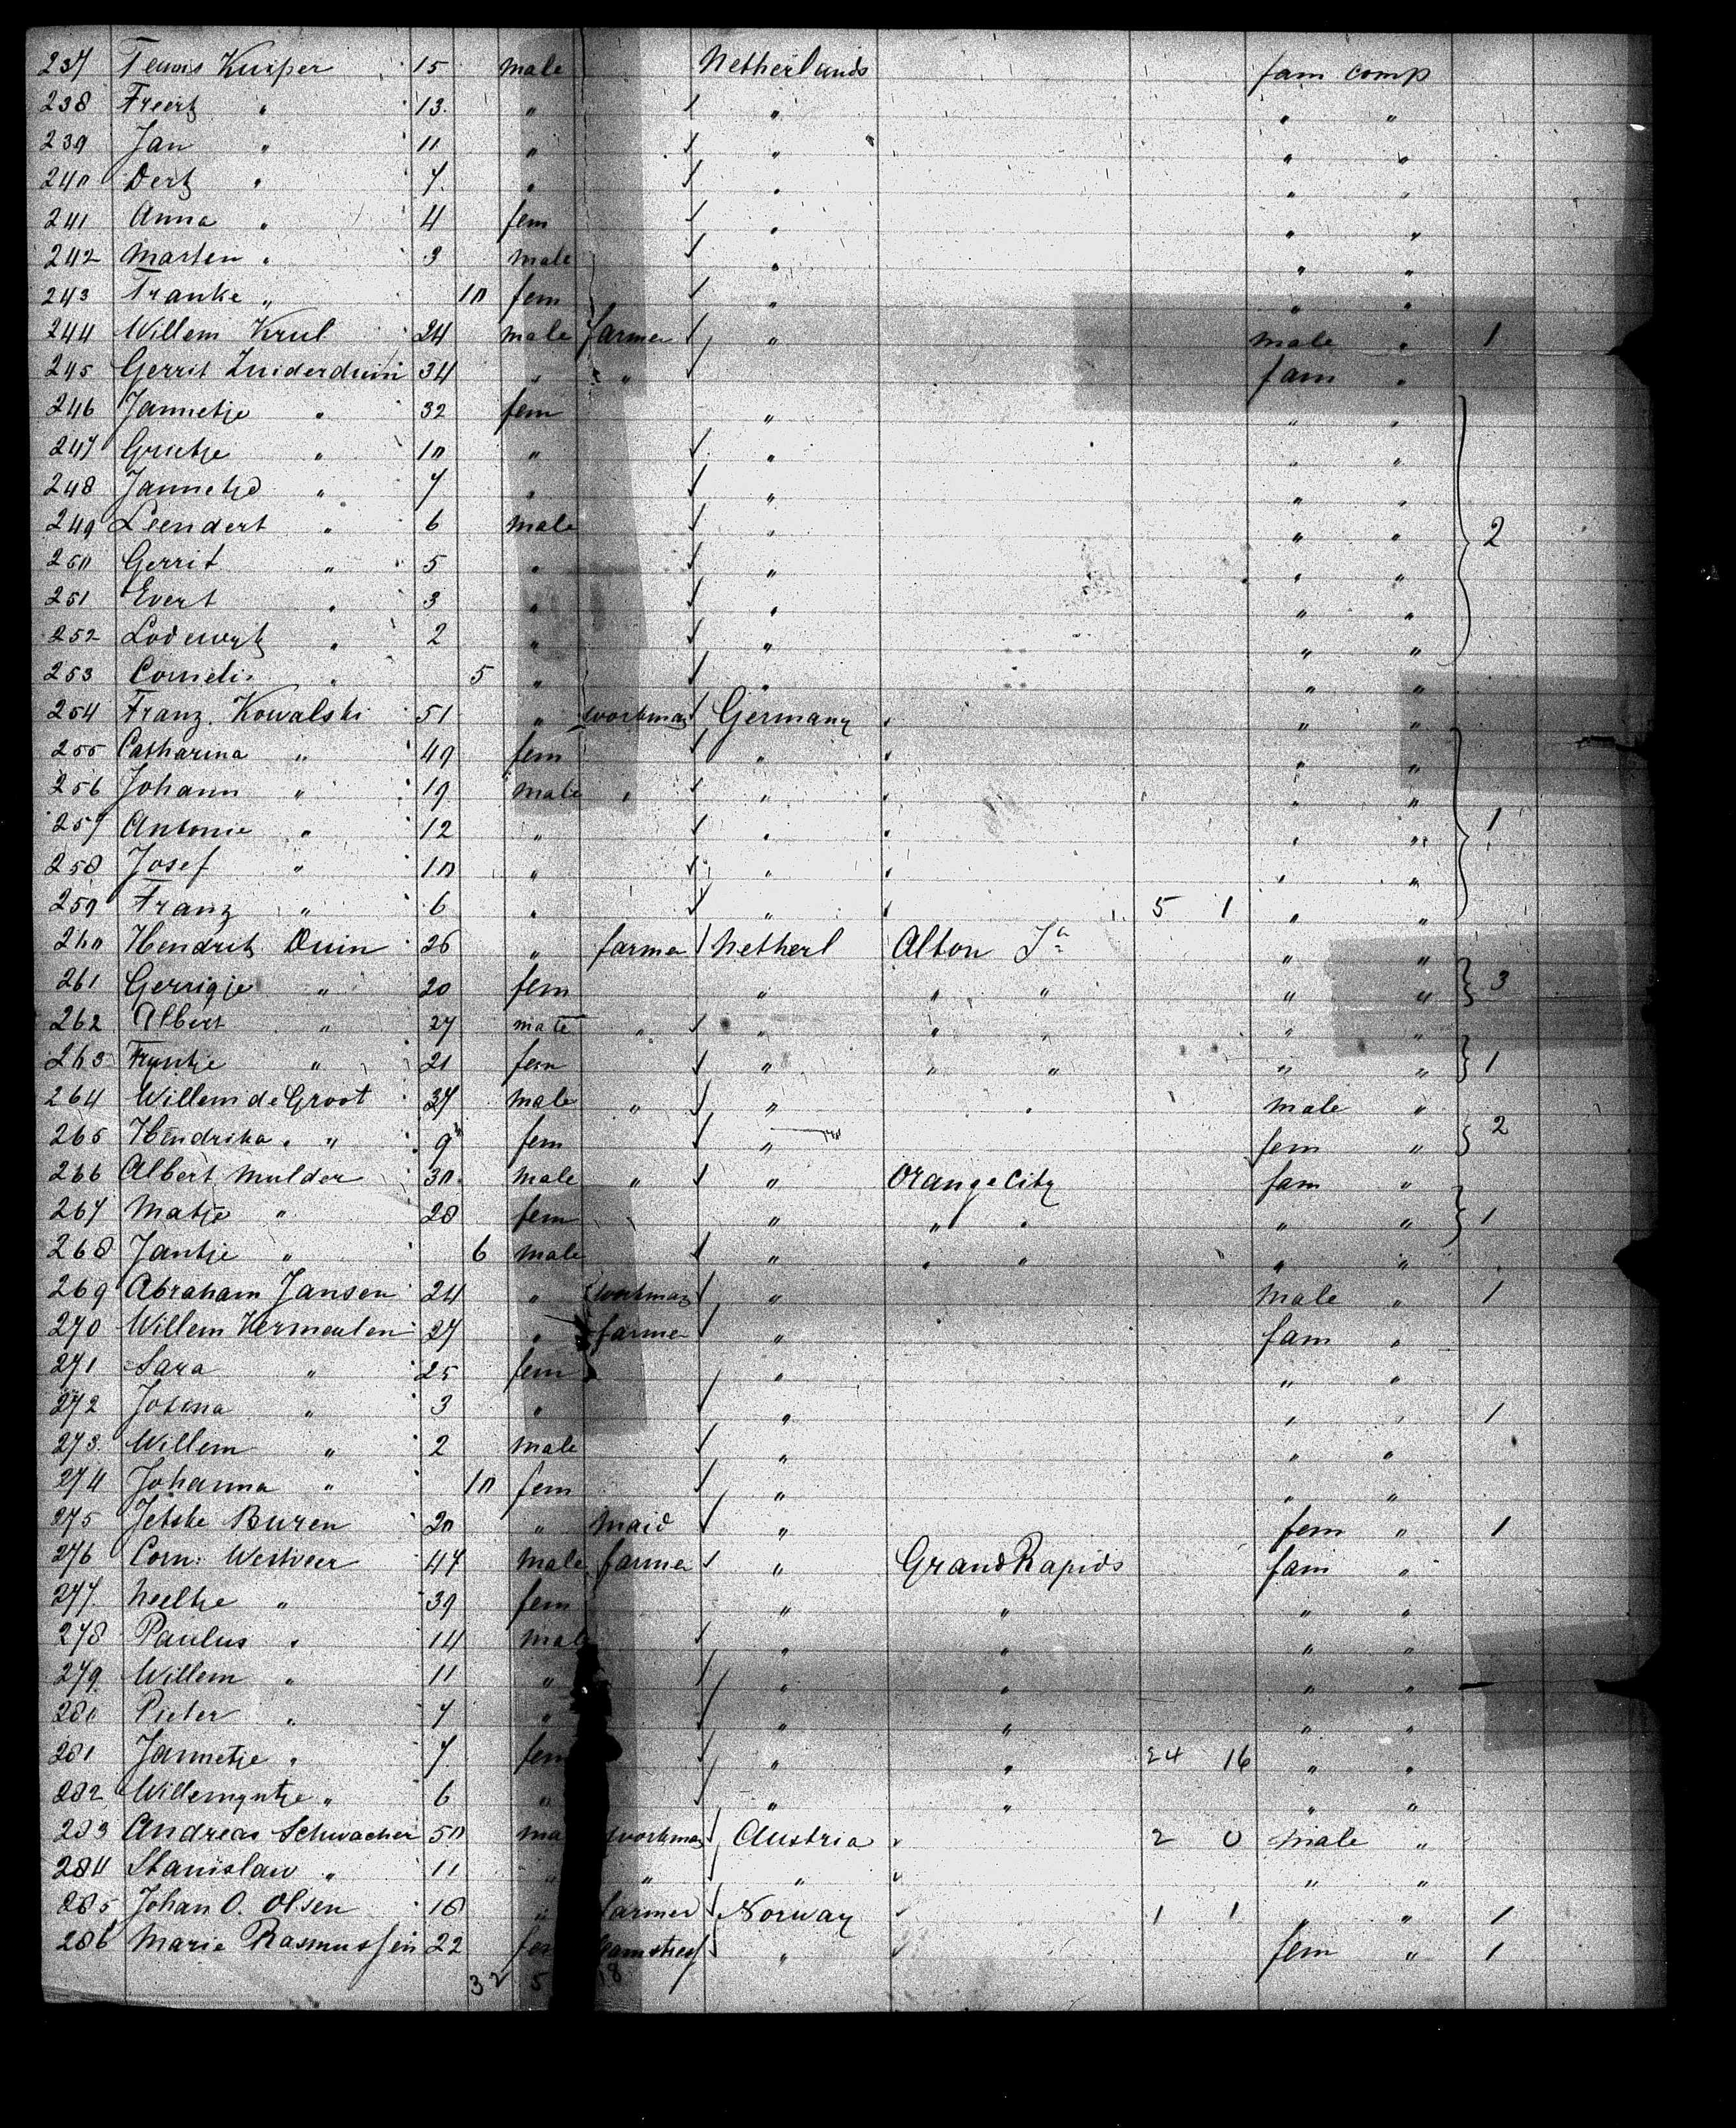 237 Teunis Kuiper 15 male Netherlands fam comp
238 Freerk " 13 " " " "
239 Jan " 11 " " " "
240 Derk " 7 " " " "
241 Anna " 4 fem " " "
242 Marten " 3 male " " "
243 Franke " 10 fem " " "
244 Willem Krul 24 male farmer " male " 1
245 Gerrit Zuiderduin 34 " " fam "
246 Jannetje " 32 fem " " "
247 Grietje " 10 " " " "
248 Jannetje " 7 " " " "
249 Leendert " 6 male " " " 2
250 Gerrit " 5 " " " "
251 Evert " 3 " " " "
252 Lodewyk " 2 " " " "
253 Cornelis " 5 " " " "
254 Franz Kowalski 51 " workman Germany " " "
255 Catharina " 49 fem " " " "
256 Johann " 19 male " " " " "
257 Antonie " 12 " " " " " 1
258 Josef " 10 " " " " "
259 Franz " 6 " " " 5 1 " "
260 Hendrik Duin 26 " farmer Netherl Alton Ia " "
261 Gerrigje " 20 fem " " " " " 3
262 Albert " 27 male " " " " " "
263 Fryntje " 21 fem " " " " " 1
264 Willem de Groot 37 male " " " male "
265 Hendrika " " 9 fem " fem " 2
266 Albert Mulder 30 male " " Orange City fam "
267 Matje " 28 fem " " " " " 1
268 Jantje " 6 male " " " " "
269 Abraham Jansen 24 " workman " male " 1
270 Willem Vermeulen 27 " farmer " fam "
271 Sara " 25 fem " " "
272 Josina " 3 " " " " 1
273 Willem " 2 male " " "
274 Johanna " 10 fem " " "
275 Jetske Buren 20 " maid " fem " 1
276 Corn: Westveer 47 male farmer " Grand Rapids fam "
277 Neeltje " 39 fem " " " "
278 Paulus " 14 male " " " "
279 Willem " 11 " " " " "
280 Pieter " 7 " " " " "
281 Jannetje " 7 fem " " 24 16 " "
282 Willemyntje " 6 " " " " "
283 Andreas Schwacher 50 ma workman Austria " 2 0 male "
284 Stanislaw " 11 " " " " " "
285 Johan O. Olsen 18 " farmer Norway " 1 1 " " 1
286 Marie Rasmussen 22 fem " " fem " 1
32 5 18